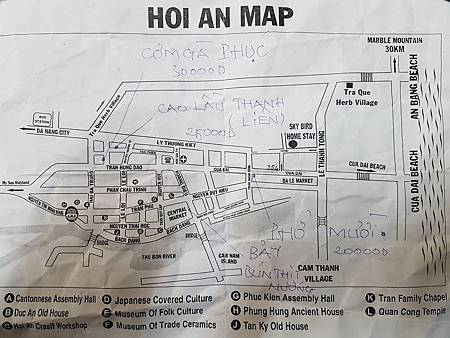 HOI AN MAP
CƠM GÀ PHỤC
30000Đ
MARBLE MOUNTAIN
30KM
Tra Que
Herb Village
AN BANG BEACH
BUS
STATION
DA NANG CITY
Tra Que Herb Village
CAO LẦU THANH
(LIÊN)
25000Đ
LY THUONG KIKT
SKY BIRD
HOME STAY
LE THANH TONG
TRAN HUNG DAO
CUA DAI
CUA DAI BEACH
CUA DAI BEACH
My Son Holyland
PHAN CHAU TRINH
BA LE MARKET
NGUYEN DUY HIEU
LE LOI
TRAN PHU
NGUYEN TIN MINH KHAI
NGUYEN THAI HOC
BACH DANG
CENTRAL
MARKET
BACH DANG
BRIDGE
BRIDGE
THU BON RIVER
CAM NAM
ISLAND
PHỞ MƯỜI.
20000Đ
BẢY
BÚN THỊT
NƯỚNG
CAM THANH
VILLAGE
A Cantonnese Assembly Hall
B Duc An Old House
C Hoi An Crastt Workshop
D Japanese Covered Culture
E Museum Of Folk Culture
F Museum Of Trade Ceramics
G Phuc Kien Assembly Hall
H Phung Hung Ancient House
J Tan Ky Old House
K Tran Family Chapel
L Quan Cong Temple